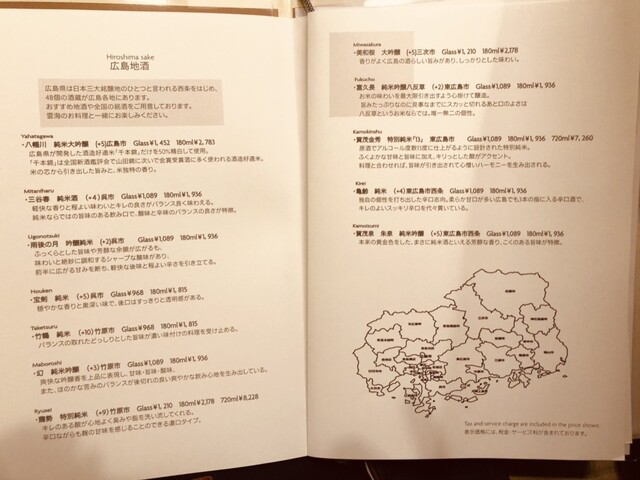 Hiroshima sake
広島地酒
広島県は日本三大銘醸地のひとつと言われる西条をはじめ、
48個の酒蔵が広島各地にあります。
おすすめ地酒や全国の銘酒をご用意しております。
雲海のお料理と一緒にお楽しみください。
Yahatagawa
・八幡川 純米大吟醸 (+5)広島市 Glass¥1,452 180ml¥2,783
広島県が開発した酒造好適米「千本錦」だけを50%精白して使用。
「千本錦」は全国新酒鑑評会で山田錦に次いで金賞受賞酒に多く使われる酒造好適米。
米の芯から引き出した旨みと、米独特の香り。
Mitaniharu
・三谷春 純米酒 (+4)呉市 Glass¥1,089 180ml¥1,936
軽快な香りと程よい味わいとキレの良さがバランス良く味わえる。
純米ならではの旨味のある飲み口で、酸味と辛味のバランスの良さが特徴。
Ugonotsuki
・雨後の月 吟醸純米 (+2)呉市 Glass¥1,089 180ml¥1,936
ふっくらとした旨味や芳醇な余韻が広がるも、
味わいと絶妙に調和するシャープな酸味があり、
前半に広がる甘みを断ち、軽快な後味と程よい辛さを引き立てる。
Houken
・宝剣 純米 (+5)呉市 Glass¥968 180ml¥1,815
穏やかな香りと奥深い味で、後口はすっきりと透明感がある。
Taketsuru
・竹鶴 純米 (+10)竹原市 Glass¥968 180ml¥1,815
バランスの取れたどっしりとした旨味が濃い味付けの料理を受け止める。
Maboroshi
・幻 純米吟醸 (+3)竹原市 Glass¥1,089 180ml¥1,936
爽快な吟醸香を上品に表現し、甘味・旨味・酸味、
また、ほのかな苦みのバランスが後切れの良い爽やかな飲み心地を生み出している。
Ryusei
・龍勢 特別純米 (+9)竹原市 Glass¥1,210 180ml¥2,178 720ml¥8,228
キレのある酸が心地よく臭みや脂を洗い流してくれる。
辛口ながらも麹の甘味を感じることのできる濃口タイプ。
Miwasakura
・美和桜 大吟醸 (+5)三次市 Glass¥1,210 180ml¥2,178
香りがよく広島の酒らしい旨みがあり、しっかりとした味わい。
Fukucho
・富久長 純米吟醸八反草 (+2)東広島市 Glass¥1,089 180ml¥1,936
お米の味わいを最大限引き出すよう心掛けて醸造。
旨みたっぷりなのに見事なまでにスカッと切れるあと口のよさは
八反草というお米ならでは、唯一無二の個性。
Kamokinshu
・賀茂金秀 特別純米 東広島市 Glass¥1,089 180ml¥1,936 720ml¥7,260
原酒でアルコール度数15度に仕上がるように設計された特別純米。
ふくよかな甘味と旨味に加え、キリッとした酸がアクセント。
料理と合わせれば、旨味が引き出されて心憎いハーモニーを生み出される。
Kirei
・亀齢 純米 (+4)東広島市西条 Glass¥1,089 180ml¥1,936
独自の個性を打ち出した辛口志向。柔らか甘口が多い広島でも3本の指に入る辛口酒で、
キレのよいスッキリ辛口を代々貫いている。
Kamoizumi
・賀茂泉 朱泉 純米吟醸 (+5)東広島市西条 Glass¥1,089 180ml¥1,936
本来の黄金色をした、まさに純米酒といえる芳醇な香り、こくのある旨味が特徴。
Tax and service charge are included in the price shown.
表示価格には、税金・サービス料が含まれております。